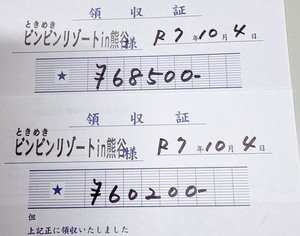 領収証
ときめき
ビンビンリゾートin熊谷様 R7年10月4日
★ ¥68500-
領収証
ときめき
ビンビンリゾートin熊谷様 R7年10月4日
★ ¥60200-
但
上記正に領収いたしました